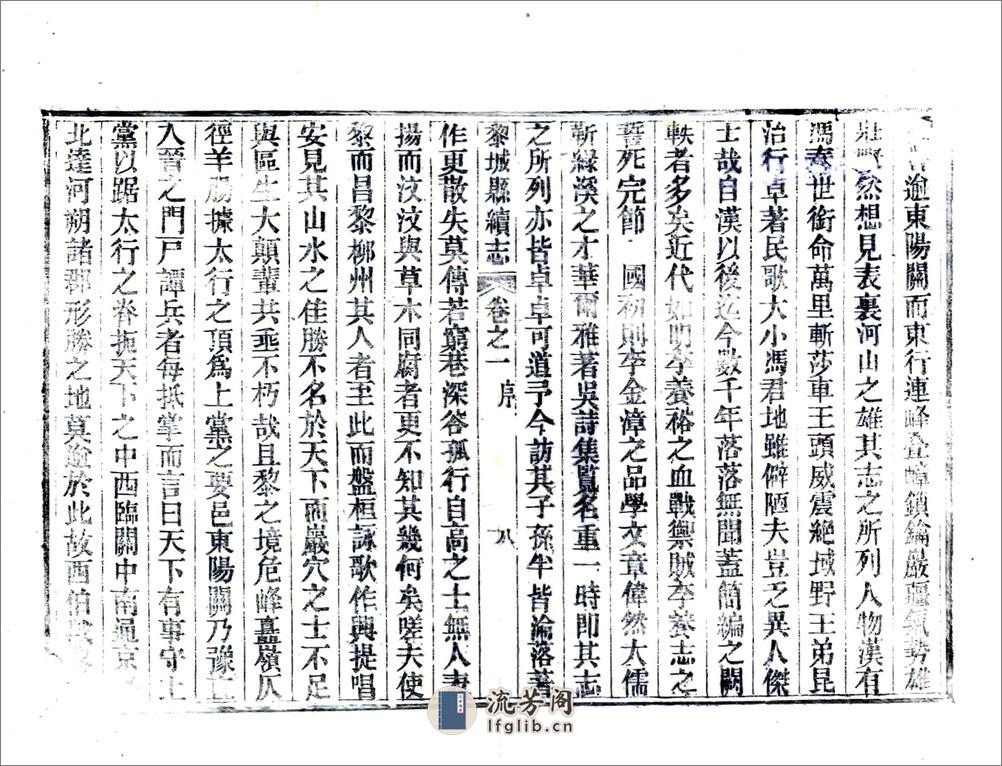 逾東陽關而東行連峰疊嶂鎖鑰嚴疆氣勢雄
然想見表裏河山之雄其志之所列人物漢有
馮奉世銜命萬里斬莎車王頭威震絕域野王弟昆
治行卓著民歌大小馮君地雖僻陋夫豈乏異人傑
士哉自漢以後迄今數千年落落無聞蓋簡編之闕
軼者多矣近代如明李養裕之血戰禦賊李養志之
誓死完節 國初則李金漳之品學文章偉然大儒
靳綠溪之才華爾雅著吳詩集覽名重一時即其志
之所列亦皆卓卓可道予今訪其子孫半皆淪落著
黎城縣續志 卷之一 序 八
作更散失莫傳若窮巷深谷孤行自高之士無人表
揚而汶汶與草木同腐者更不知其幾何矣嗟夫使
黎而昌黎柳州其人者至此而盤桓詠歌作興提唱
安見其山水之佳勝不名於天下而巖穴之士不足
與區生大顛輩共垂不朽哉且黎之境危峰矗嶺仄
徑羊腸據太行之頂為上黨之要邑東陽關乃豫直
入晉之門戶譚兵者每抵掌而言曰天下有事守上
黨以踞太行之脊扼天下之中西臨關中南通京
北達河朔諸郡形勝之地莫逾於此故西伯
流芳阁
lfglib.cn